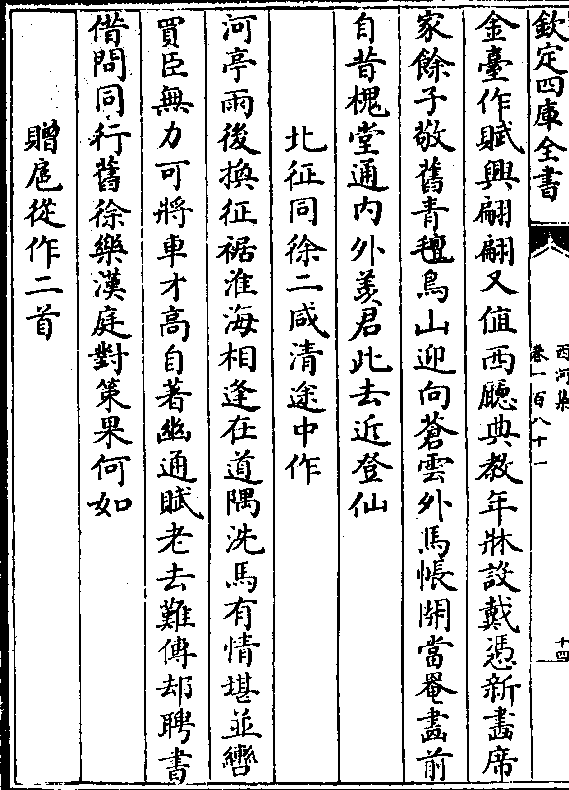 欽定四庫全書
西河集
卷一百八十一
十四
金臺作賦興翩翩又值西廳典教年牀設戴憑新畵席
家餘子敬舊青氊鳥山迎向蒼雲外馬帳開當罨畵前
自昔槐堂通內外羨君此去近登仙
北征同徐二咸清途中作
河亭雨後換征裾淮海相逢在道隅洗馬有情堪並轡
買臣無力可將車才高自著幽通賦老去難傳却聘書
借問同行舊徐樂漢庭對策果何如
贈扈從作二首